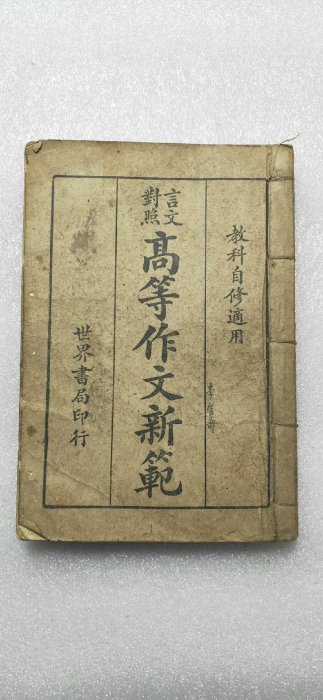 教科自修適用
言文對照
高等作文新範
世界書局印行